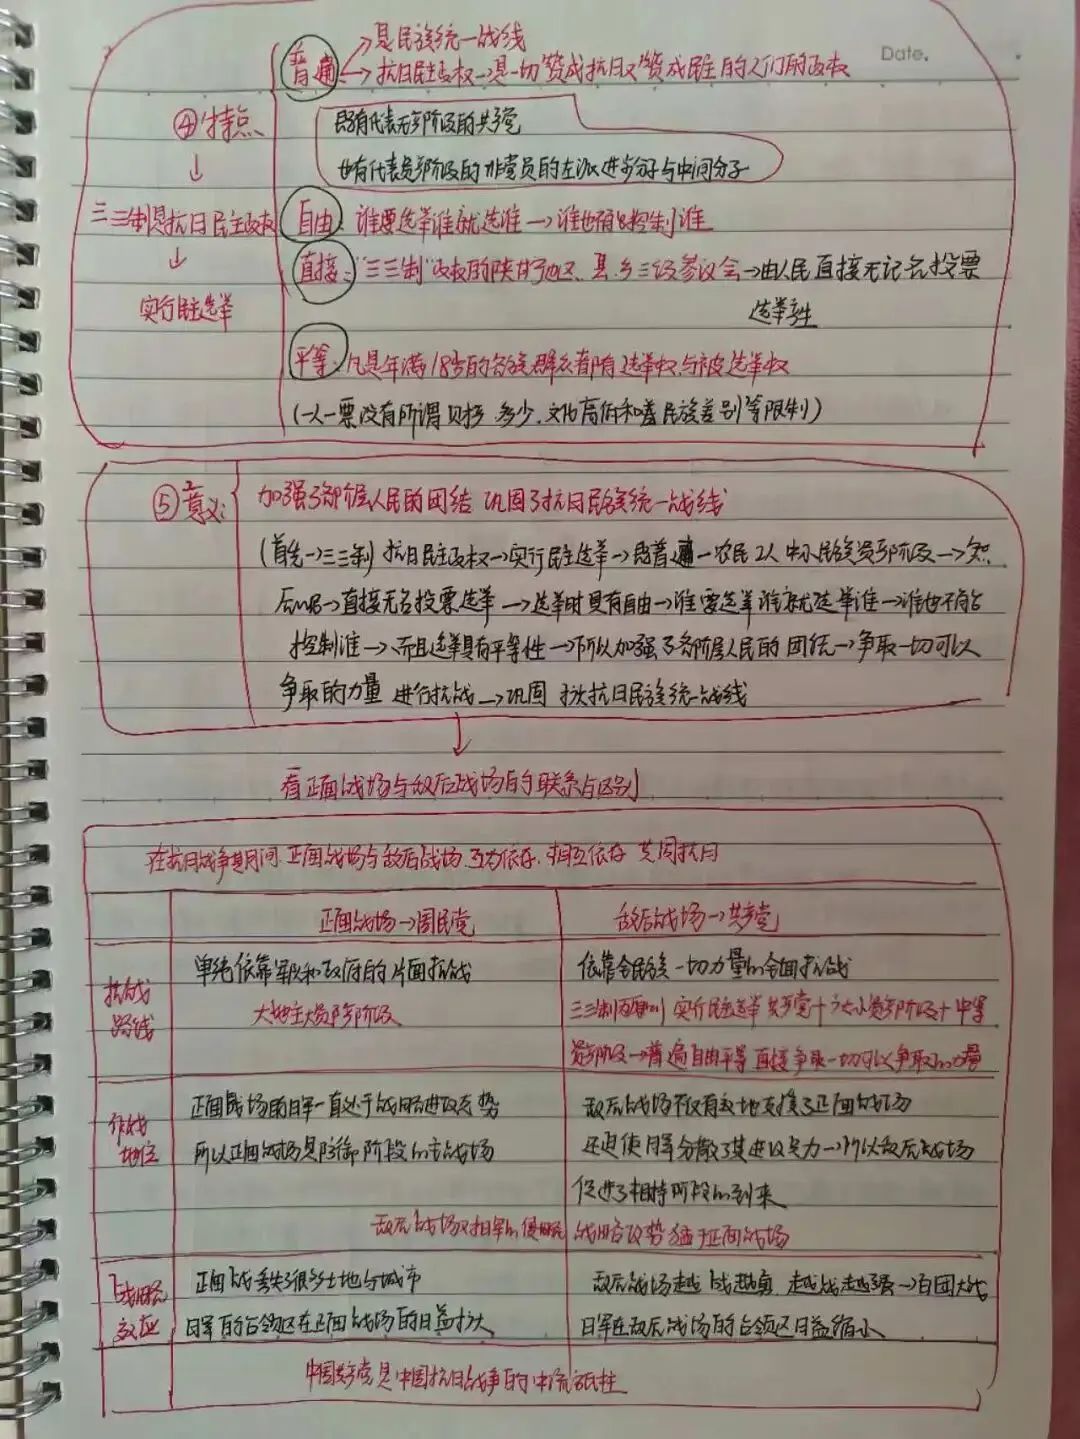 Date.
普遍 →是民族统一战线
→抗日民主政权→是一切"赞成抗日又"赞成民主的人们的政权
④特点
既有代表无产阶级的共产党
也有代表资产阶级的非党员的左派进步分子与中间分子
三三制是抗日民主政权
自由：谁要选举谁就选谁→谁也不控制谁
直接："三三制"政权的陕甘宁地区、县、乡三级参议会→由人民直接无记名投票
实行民主选举
选举产生
平等：凡是年满18岁的各族群众都有选举权与被选举权
(一人一票没有所谓财产多少、文化高低和着民族差别等限制)
⑤意义：
加强了各阶层人民的团结 巩固了抗日民族统一战线
(首先→三三制)抗日民主政权→实行民主选举→既普遍—农民工人中小民族资产阶级→知
直接无名投票选举→选举时具有自由→谁要选举谁就选举谁→谁也不
控制谁→而且选举具有平等性→所以加强了各阶层人民的团结→争取一切可以
争取的力量 进行抗战→巩固 抗日民族统一战线
看正面战场与敌后战场的联系与区别
在抗日战争期间 正面战场与敌后战场 互为依存、相互依存 共同抗日
正面战场→国民党 敌后战场→共产党
抗战路线
单纯依靠军队和政府的片面抗战
依靠全民族一切力量的全面抗战
大地主大资产阶级
三三制 实行民主选举 共产党+ 小资产阶级+中等
资产阶级→普遍自由平等直接争取一切可以争取的力量
作战地位
正面战场的日军一直处于战略进攻态势
敌后战场不仅有效地支援了正面战场
所以正面战场是防御阶段的主战场
还迫使日军分散了其进攻兵力→所以敌后战场
促进了相持阶段的到来
敌后战场对日军的侵略 战略攻势猛于正面战场
战略效应
正面战丢失了很多土地与城市
敌后战场越战越勇 越战越强→百团大战
日军的占领区在正面战场的日益扩大
日军在敌后战场的占领区日益缩小
中国共产党是中国抗日战争的中流砥柱